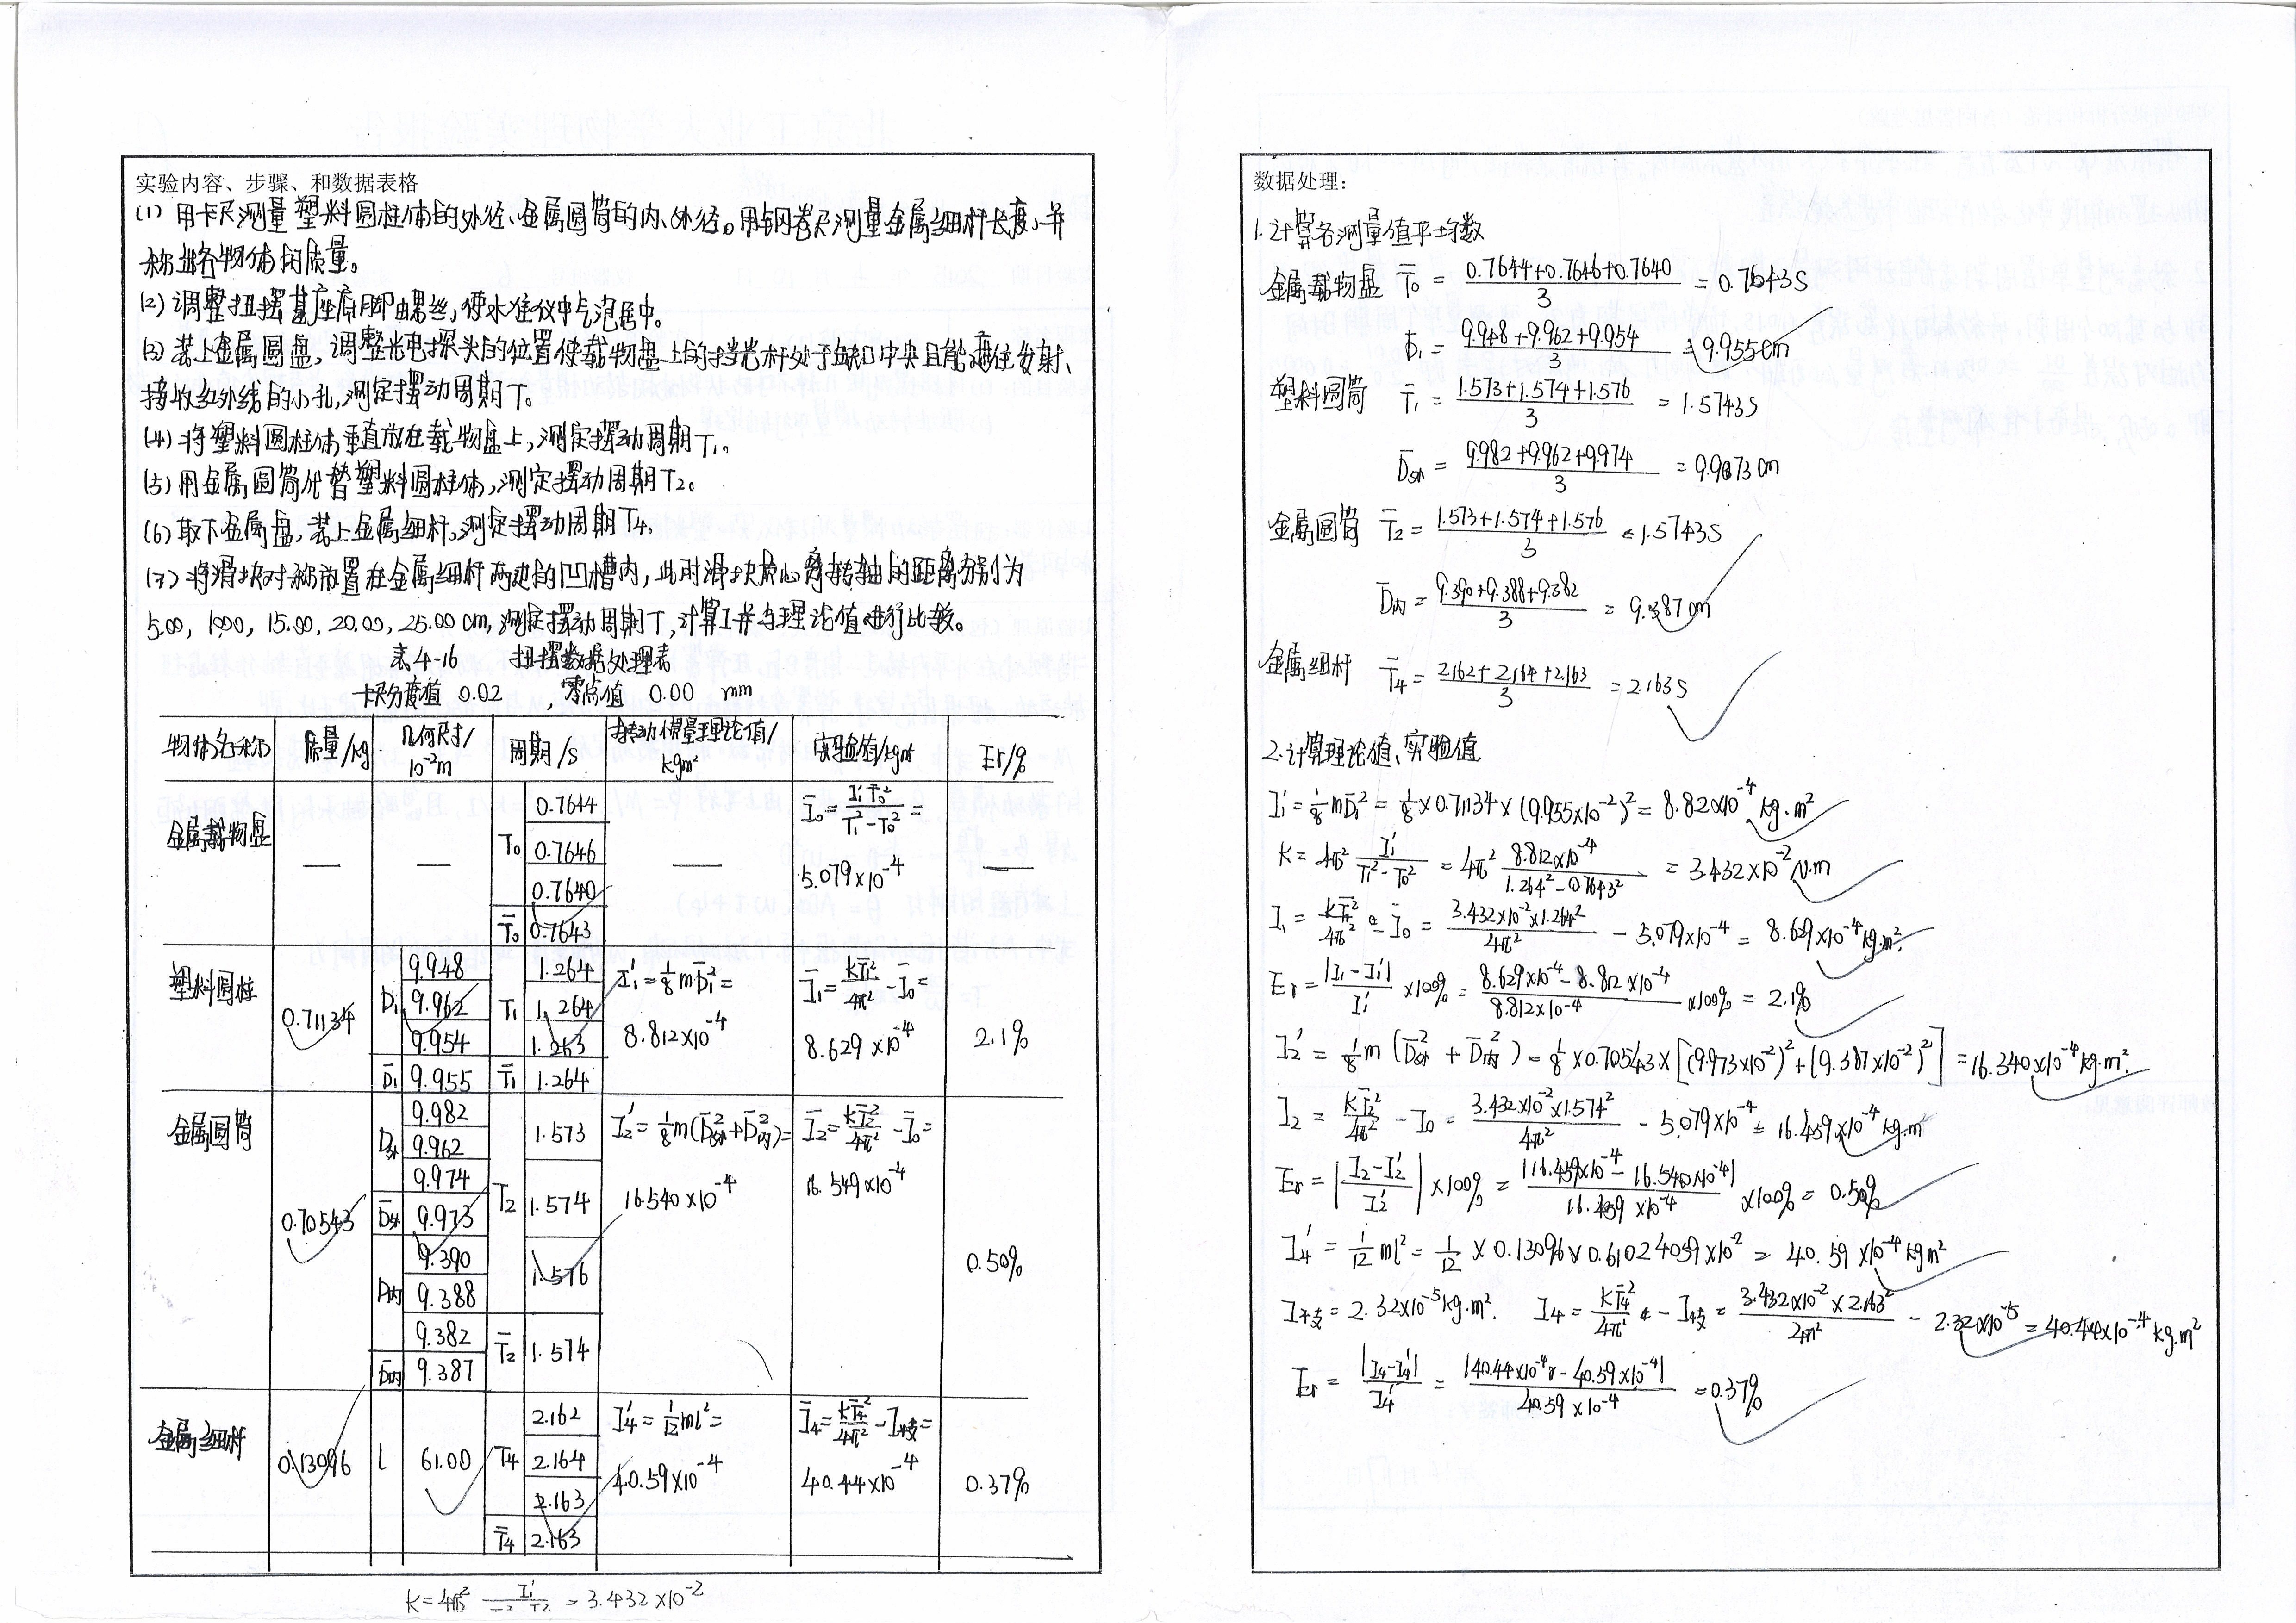 实验内容、步骤、和数据表格
(1) 用卡尺测量塑料圆柱体的外径、金属圆筒的内、外径。用钢卷尺测量金属细杆长度,并
称出各物体的质量。
(2) 调整扭摆基座底脚螺丝,使水准仪中气泡居中。
(3) 装上金属圆盘,调整光电探头的位置使载物盘上的挡光杆处于缺口中央且能遮住发射、
接收红外线的小孔,测定摆动周期T₀
(4) 将塑料圆柱体垂直放在载物盘上,测定摆动周期T₁。
(5) 用金属圆筒代替塑料圆柱体,测定摆动周期T₂。
(6) 取下金属盘,装上金属细杆,测定摆动周期T₄。
(7) 将滑块对称放置在金属细杆两边的凹槽内,此时滑块质心离转轴的距离分别为
5.00, 10.00, 15.00, 20.00, 25.00 cm, 测定摆动周期T,计算I并与理论值进行比较。
表4-16 扭摆数据处理表
卡尺分度值 0.02 , 零点值 0.00 mm
物体名称 质量/kg 几何尺寸/10⁻²m 周期/s 转动惯量理论值/kgm² 实验值/kgm² Er/%
金属载物盘 — — T₀ 0.7644 — Ī₀ = I₁'T̄₀²/(T̄₁²-T̄₀²) = —
0.7646 5.079×10⁻⁴
0.7640
T̄₀ 0.7643
塑料圆柱 0.71134 D₁ 9.948 T₁ 1.264 I₁' = 1/8 mD̄₁² = Ī₁ = KT̄₁²/4π² - Ī₀ = 2.1%
9.962 1.264 8.812×10⁻⁴ 8.629×10⁻⁴
9.954 1.263
D̄₁ 9.955 T̄₁ 1.264
金属圆筒 0.70543 D外 9.982 T₂ 1.573 I₂' = 1/8 m(D̄外²+D̄内²) = Ī₂ = KT̄₂²/4π² - Ī₀ = 0.50%
9.962
9.974 1.574 16.540×10⁻⁴ 16.549×10⁻⁴
D̄外 9.973
D内 9.390 1.576
9.388
9.382 T̄₂ 1.574
D̄内 9.387
金属细杆 0.13096 l 61.00 T₄ 2.162 I₄' = 1/12 ml² = Ī₄ = KT̄₄²/4π² - I夹支 = 0.37%
2.164 40.59×10⁻⁴ 40.44×10⁻⁴
2.163
T̄₄ 2.163
K = 4π² = 3.432×10⁻²
数据处理:
1. 计算各测量值平均数
金属载物盘 T̄₀ = (0.7644+0.7646+0.7640)/3 = 0.7643s
D̄₁ = (9.948+9.962+9.954)/3 = 9.955cm
塑料圆筒 T̄₁ = (1.573+1.574+1.576)/3 = 1.5743s
D̄外 = (9.982+9.962+9.974)/3 = 9.9673cm
金属圆筒 T̄₂ = (1.573+1.574+1.576)/3 = 1.5743s
D̄内 = (9.390+9.388+9.382)/3 = 9.387cm
金属细杆 T̄₄ = (2.162+2.164+2.163)/3 = 2.163s
2. 计算理论值、实验值
I₁' = 1/8 mD̄₁² = 1/8 ×0.71134×(9.955×10⁻²)² = 8.82×10⁻⁴ kg·m²
K = 4π² I₁'/(T̄₁²-T̄₀²) = 4π² 8.812×10⁻⁴/(1.264²-0.7643²) = 3.432×10⁻² N·m
I₁ = KT̄₁²/4π² - Ī₀ = 3.432×10⁻²×1.264²/4π² - 5.079×10⁻⁴ = 8.629×10⁻⁴ kg·m²
Er = |I₁-I₁'|/I₁' ×100% = (8.629×10⁻⁴-8.812×10⁻⁴)/8.812×10⁻⁴ ×100% = 2.1%
I₂' = 1/8 m(D̄外²+D̄内²) = 1/8 ×0.70543×[(9.973×10⁻²)²+(9.387×10⁻²)²] = 16.540×10⁻⁴ kg·m²
I₂ = KT̄₂²/4π² - I₀ = 3.432×10⁻²×1.574²/4π² - 5.079×10⁻⁴ = 16.459×10⁻⁴ kg·m²
Er = |(I₂-I₂')/I₂'| ×100% = |16.459×10⁻⁴-16.540×10⁻⁴|/16.459×10⁻⁴ ×100% = 0.50%
I₄' = 1/12 ml² = 1/12 ×0.13096×0.61024059×10⁻² = 40.59×10⁻⁴ kgm²
I夹支 = 2.32×10⁻⁵ kg·m². I₄ = KT̄₄²/4π² - I夹支 = 3.432×10⁻²×2.163²/4π² - 2.32×10⁻⁵ = 40.44×10⁻⁴ kg·m²
Er = |I₄-I₄'|/I₄' = |40.44×10⁻⁴-40.59×10⁻⁴|/40.59×10⁻⁴ = 0.37%